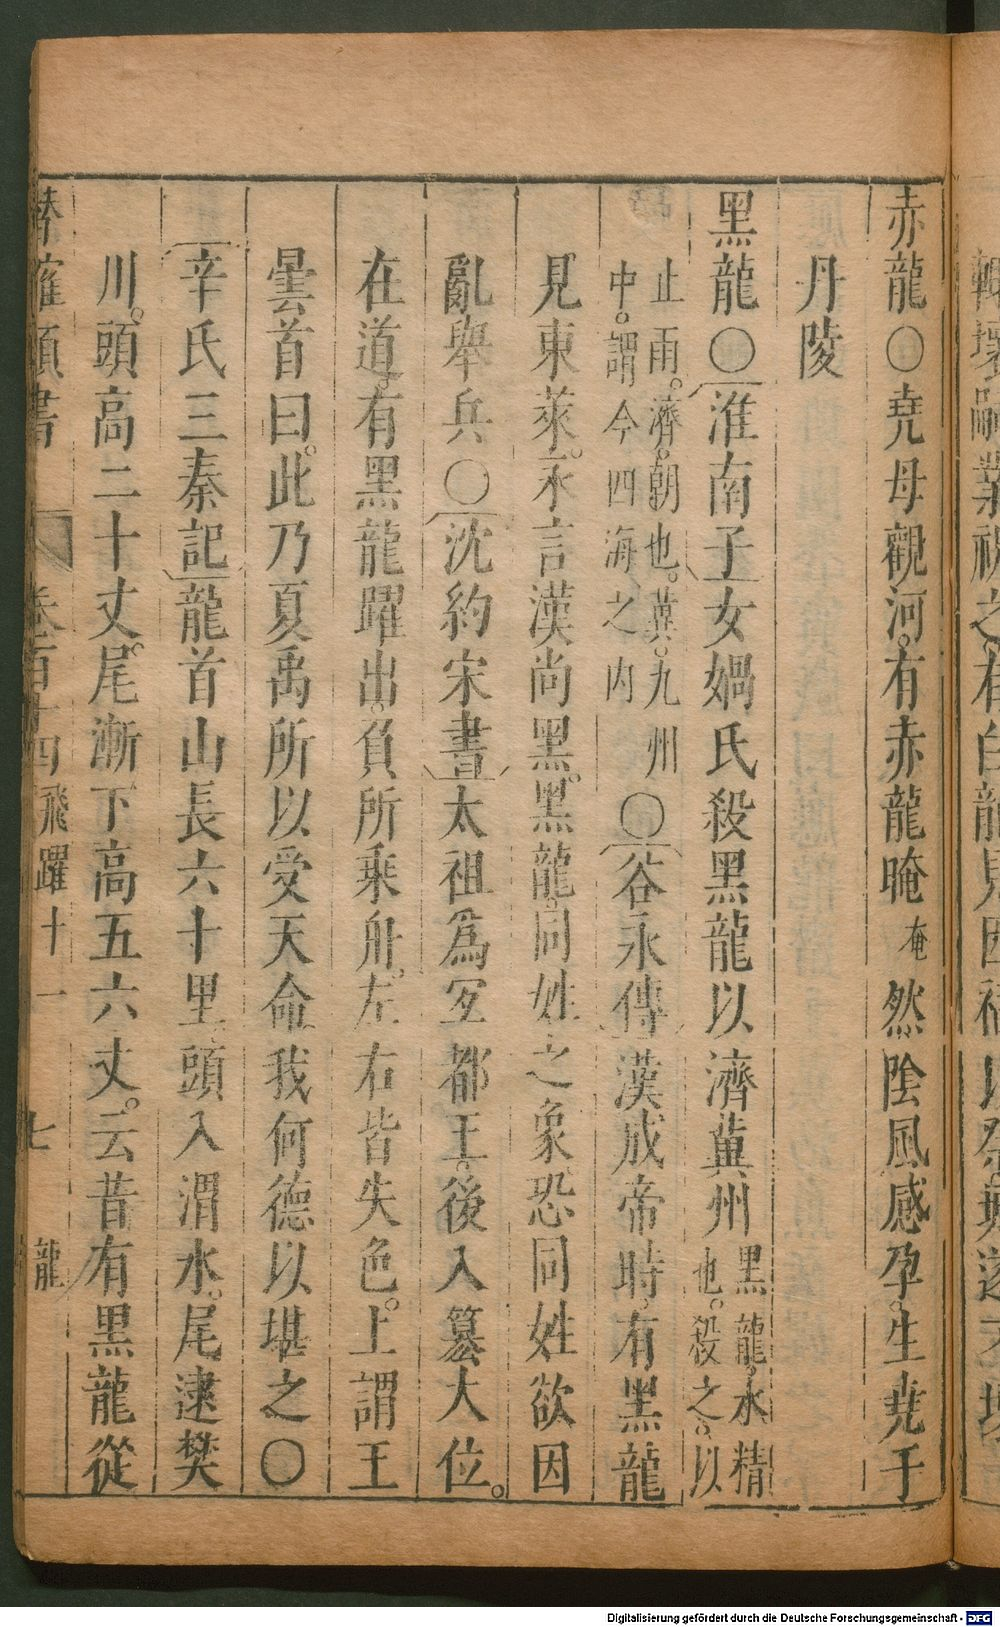 赤龍○堯母觀河。有赤龍晻奄然陰風感孕。生堯于
丹陵
黑龍○淮南子女媧氏殺黑龍以濟冀州黑龍。水精
也。殺之。以
止雨。濟。朝也。冀。九州
中。謂今四海之内
○谷永傳漢成帝時。有黑龍
見東萊。永言漢尚黑。黑龍。同姓之象恐同姓欲因
亂舉兵○沈約宋書太祖爲宜都王。後入篡大位。
在道。有黑龍躍出。負所乗舟。左右皆失色。上謂王
曇首曰。此乃夏禹所以受天命我何德以堪之○
辛氏三秦記龍首山長六十里頭入渭水。尾逮樊
川。頭高二十丈。尾漸下高五六丈。云昔有黑龍從
卷百十四 飛躍十一 七 龍
Digitalisierung gefördert durch die Deutsche Forschungsgemeinschaft - DFG